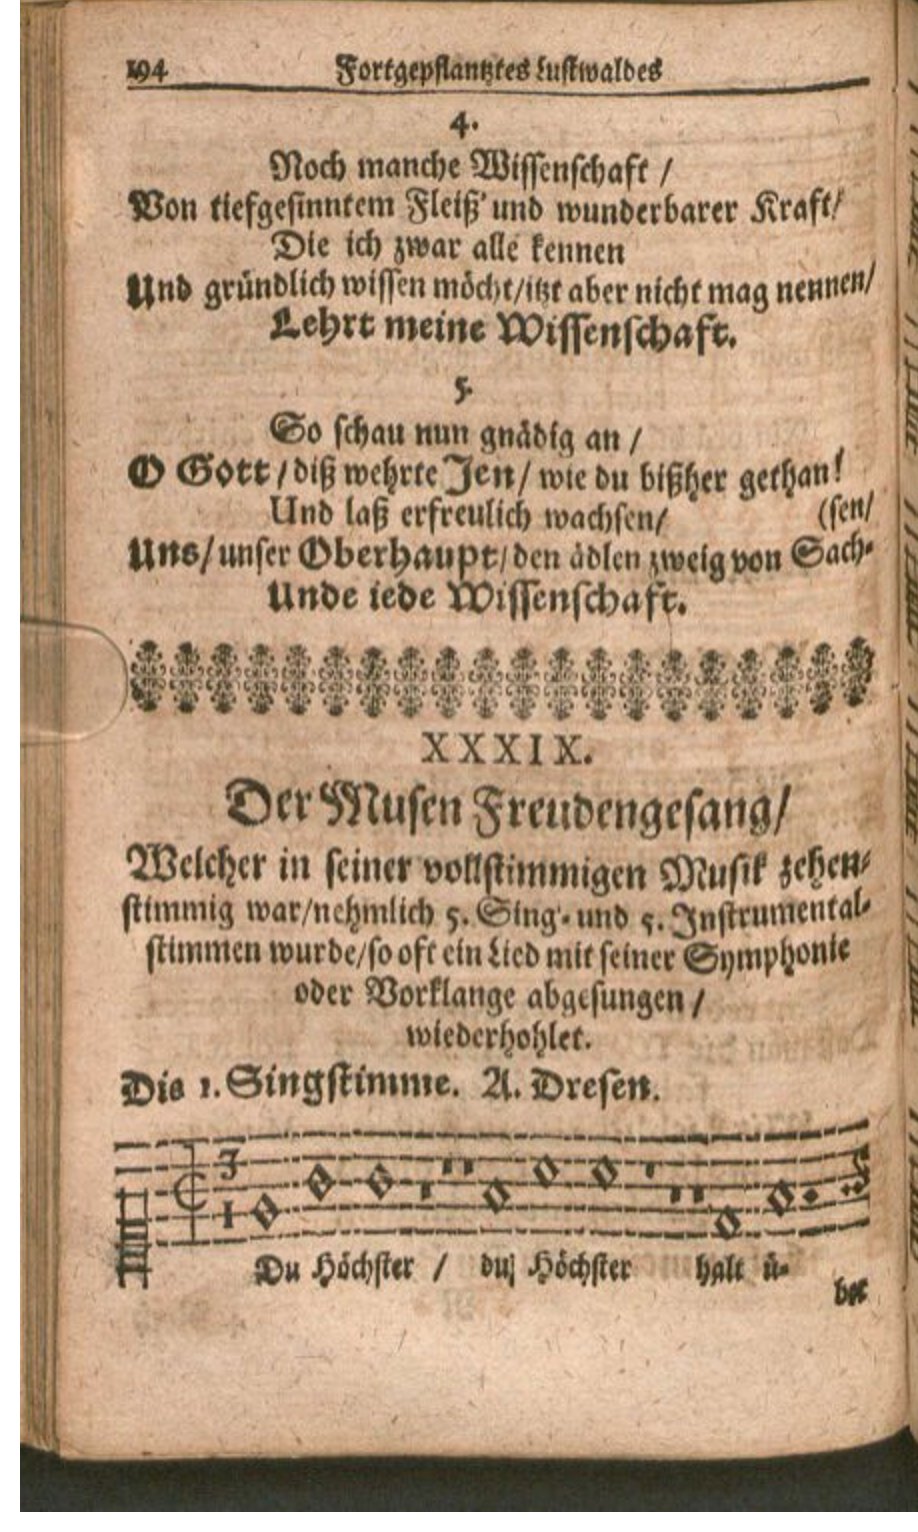 194 Fortgepflantztes Lustwaldes
4.
Noch manche Wissenschaft /
Von tiefgesinntem Fleiß' und wunderbarer Kraft/
Die ich zwar alle kennen
Und gründlich wissen möcht/itzt aber nicht mag nennen/
Lehrt meine Wissenschaft.
5.
So schau nun gnädig an /
O Gott / diß wehrte Jen / wie du bißher gethan!
Und laß erfreulich wachsen/ (sen/
Uns/ unser Oberhaupt/ den ädlen zweig von Sach-
Unde iede Wissenschaft.
XXXIX.
Der Musen Freudengesang/
Welcher in seiner vollstimmigen Musik zehen-
stimmig war/nehmlich 5. Sing- und 5. Instrumental-
stimmen wurde/so oft ein Lied mit seiner Symphonie
oder Vorklange abgesungen /
wiederhohlet.
Die 1. Singstimme. A. Dresen.
3
1
Du Höchster / du Höchster halt ü-
ber